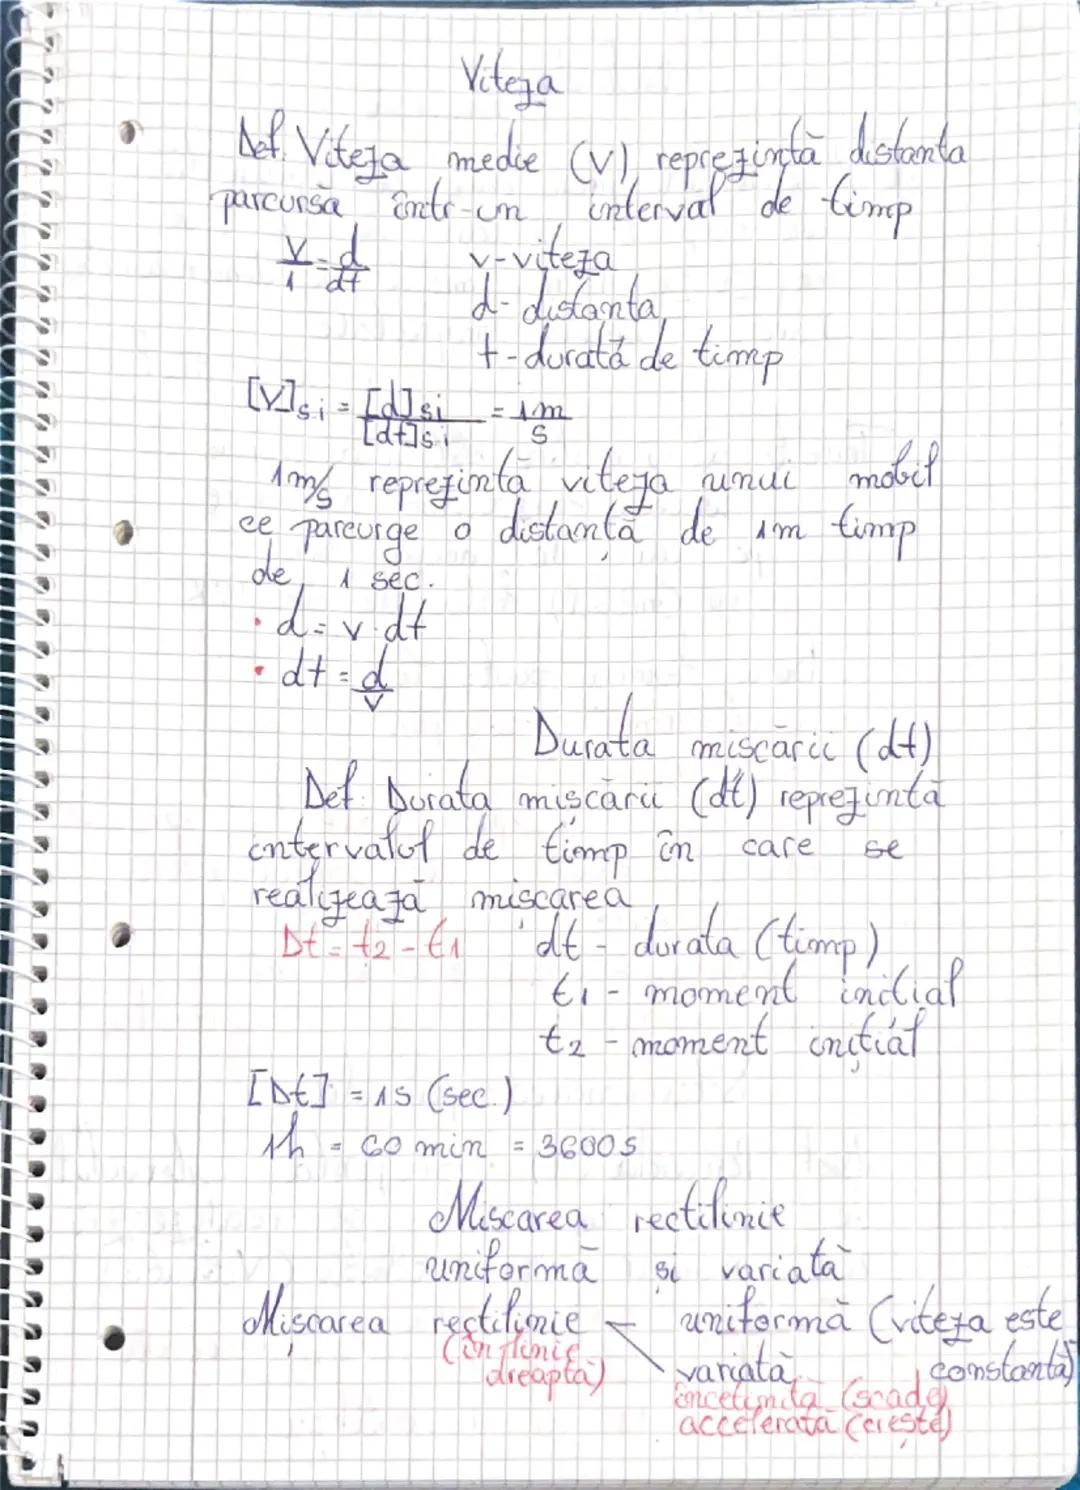 Viteza
Def. Viteza medie (V) reprezintă distanta
parcursă într-un interval de timp
V/1 = d/dt v-viteza
d-distanta
t-durată de timp
[V]si = [d]si/[dt]si = 1m/s
1m/s reprezintă viteza unui mobil
ce parcurge o distanță de 1m timp
de 1 sec.
• d = v·dt
• dt = d/v
Durata miscării (dt)
Def. Durata mișcării (dt) reprezintă
intervalul de timp în care se
realizează mișcarea
Dt = t2 - t1 dt - durata (timp)
t1 - moment inițial
t2 - moment inițial
[Dt] = 1s (sec.)
1h = 60 min = 3600s
Miscarea rectilinie
uniformă și variată
Mișcarea rectilinie uniformă (viteza este
(în linie variată, constantă)
dreaptă) încetinită (scade)
accelerată (crește)